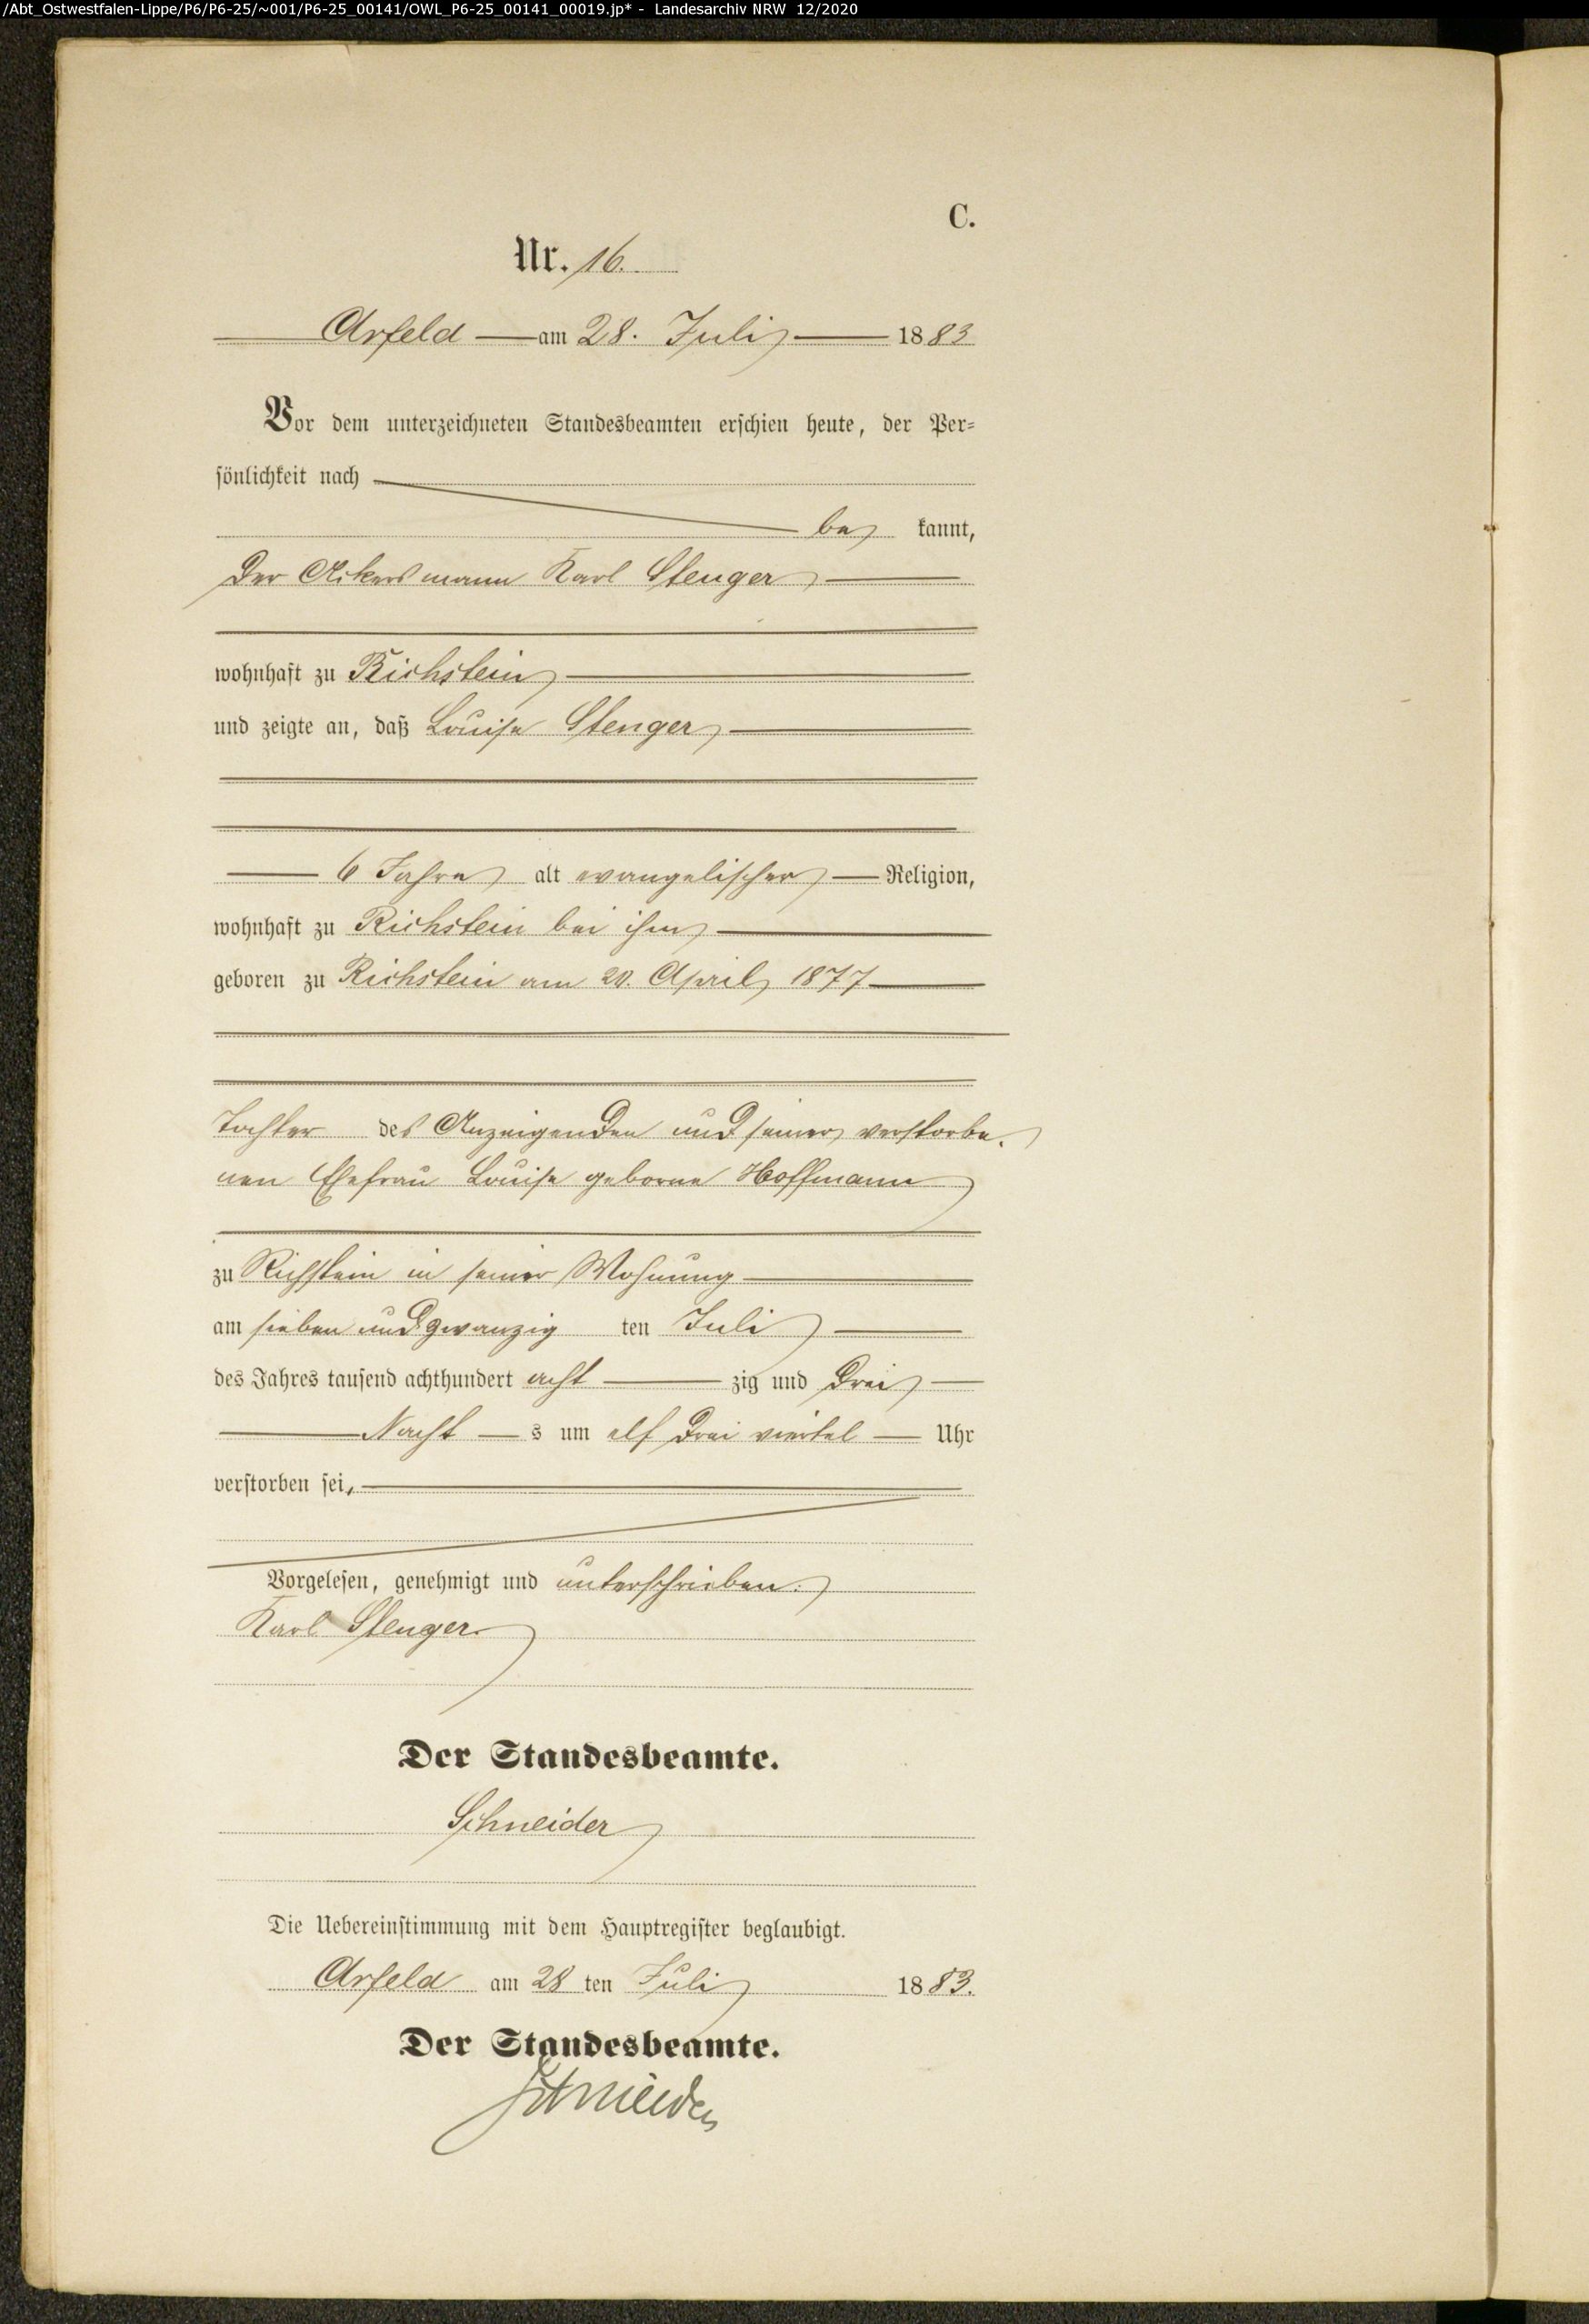 /Abt_Ostwestfalen-Lippe/P6/P6-25/~001/P6-25_00141/OWL_P6-25_00141_00019.jp* - Landesarchiv NRW 12/2020
C.
Nr. 16.
Arfeld am 28. Juli 1883
Vor dem unterzeichneten Standesbeamten erschien heute, der Per-
sönlichkeit nach
be kannt,
der Ackersmann Karl Stenger
wohnhaft zu Richstein
und zeigte an, daß Louise Stenger
6 Jahre alt evangelischer Religion,
wohnhaft zu Richstein bei ihm
geboren zu Richstein am 20. April 1877
Tochter des Anzeigenden und seiner verstorbe-
nen Ehefrau Louise geborne Hoffmann
zu Richstein in seiner Wohnung
am sieben und zwanzig ten Juli
des Jahres tausend achthundert acht zig und drei
Nacht s um elf drei viertel Uhr
verstorben sei,
Vorgelesen, genehmigt und unterschrieben.
Karl Stenger.
Der Standesbeamte.
Schneider
Die Uebereinstimmung mit dem Hauptregister beglaubigt.
Arfeld am 28 ten Juli 1883.
Der Standesbeamte.
Schneider